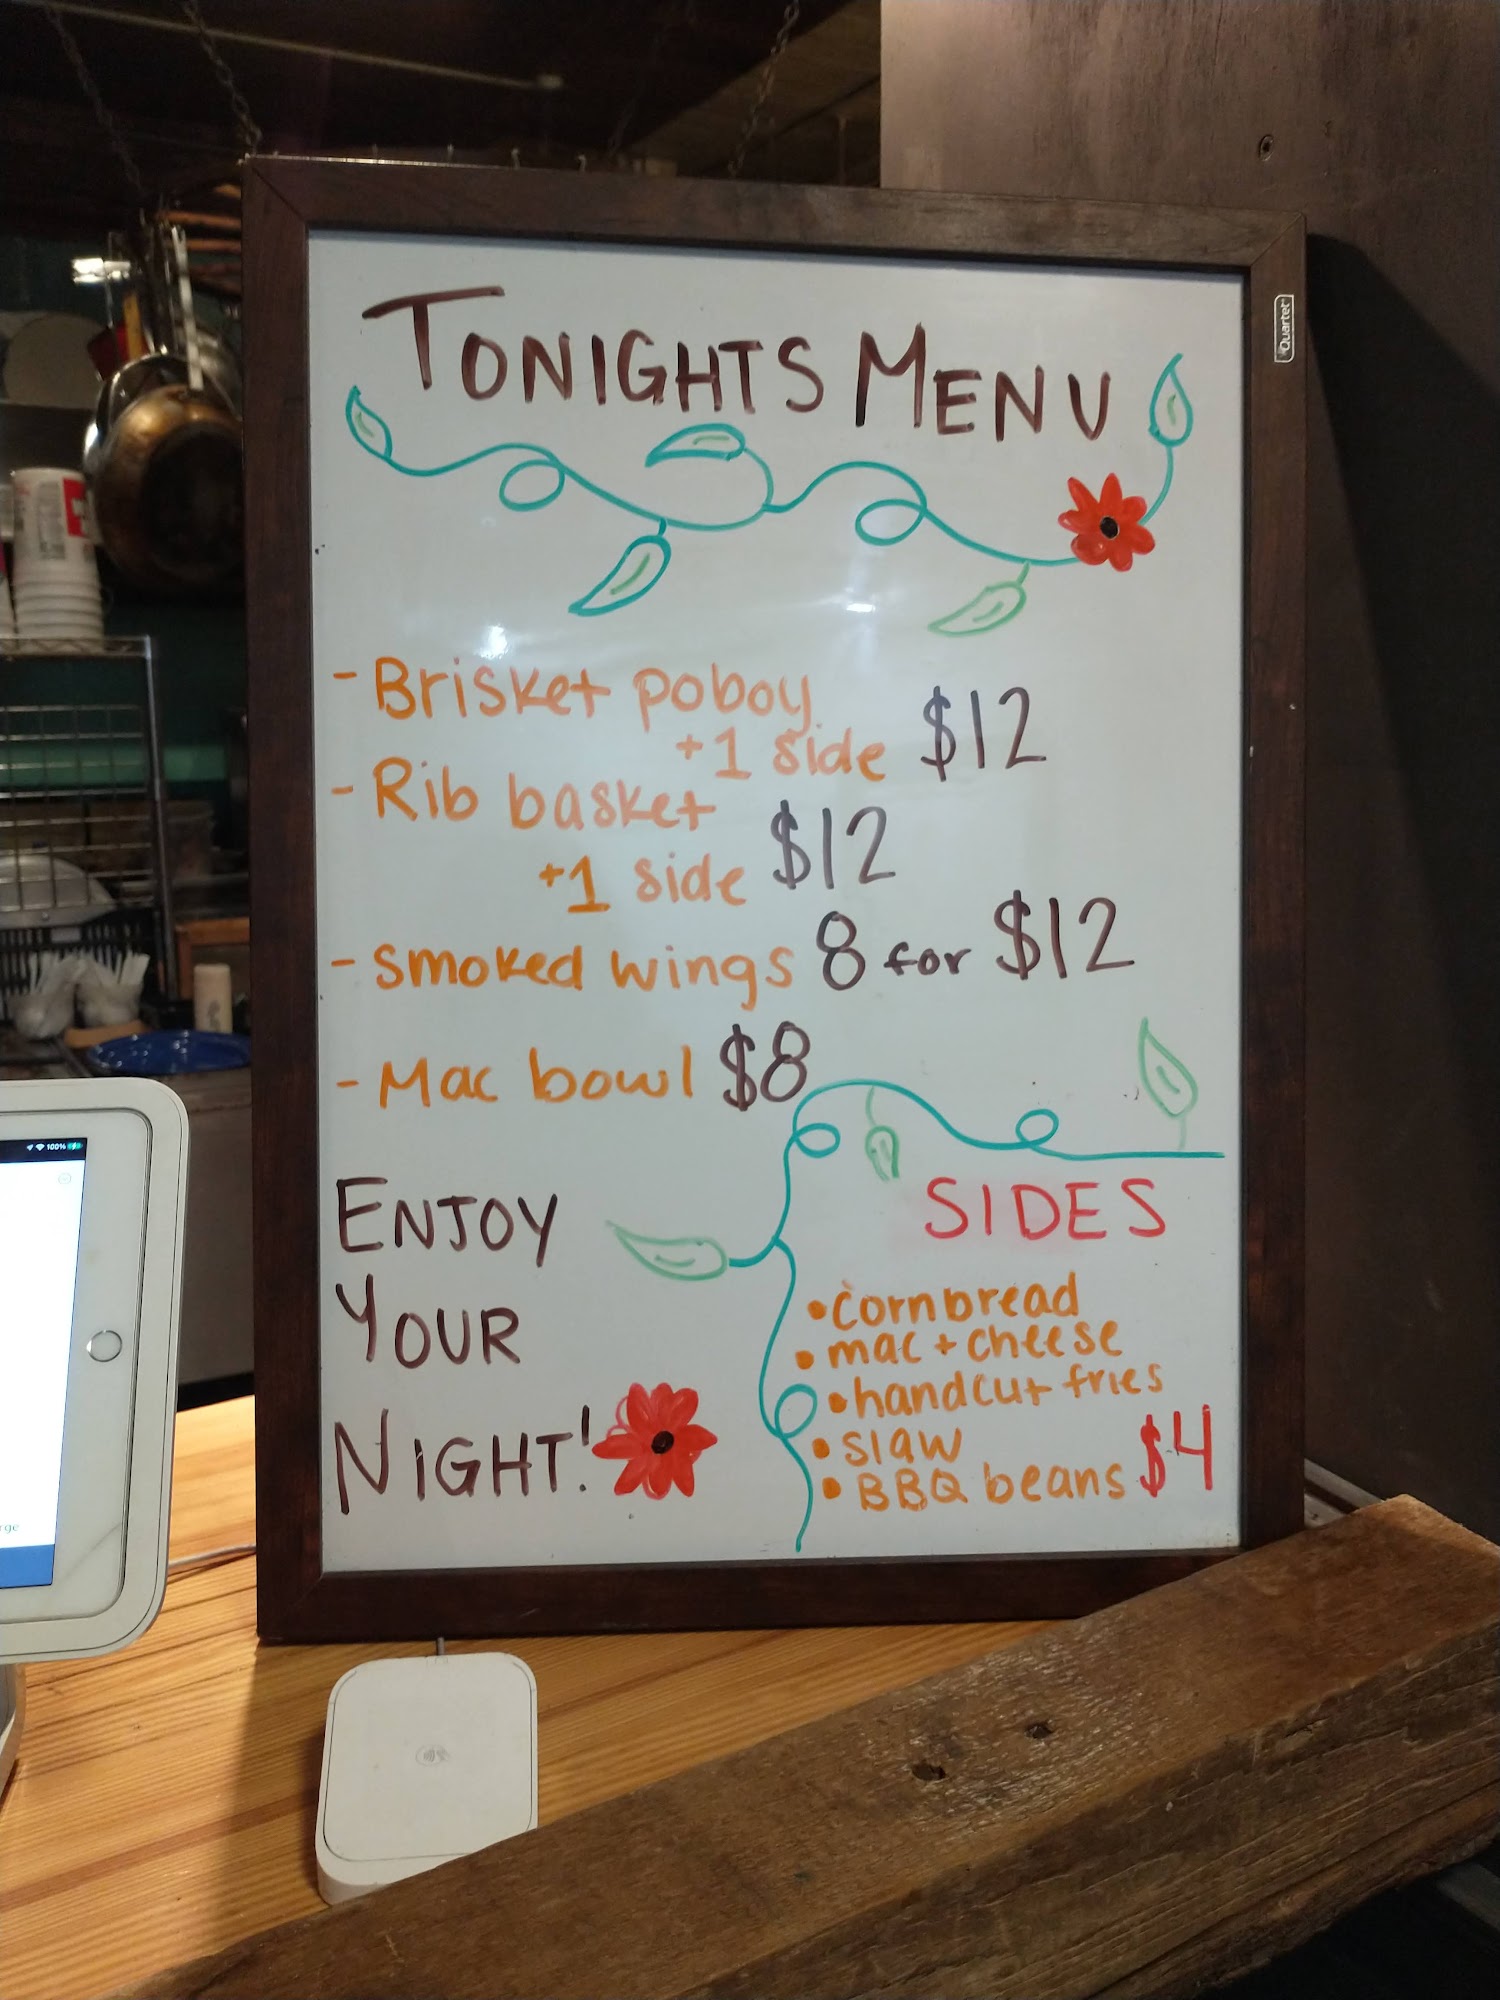 Quartet
TONIGHTS MENU
- Brisket poboy
+1 side $12
- Rib basket
+1 side $12
- smoked wings 8 for $12
- Mac bowl $8
ENJOY
YOUR
NIGHT!
SIDES
• cornbread
• mac + cheese
• handcut fries
• slaw
• BBQ beans $4
100%
rge